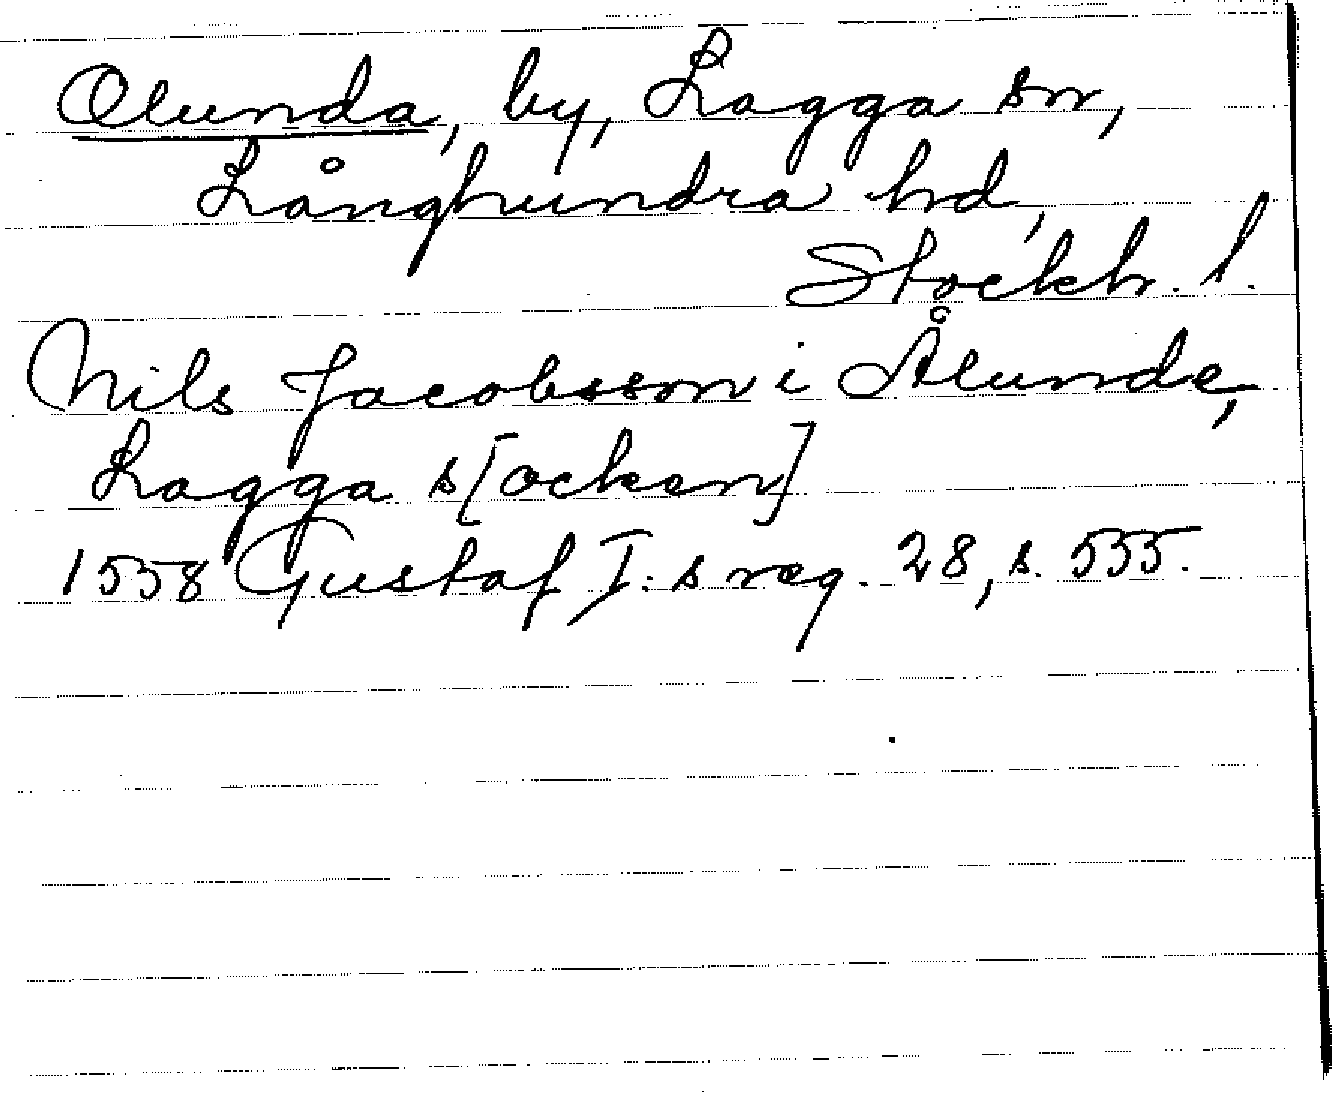 Olunda, by, Lagga sn,
Långhundra hd,
Stockh. l.
Nils Jacobsson i Ålunde,
Lagga s[ocken]
1558 Gustaf I:s reg. 28, s. 555.